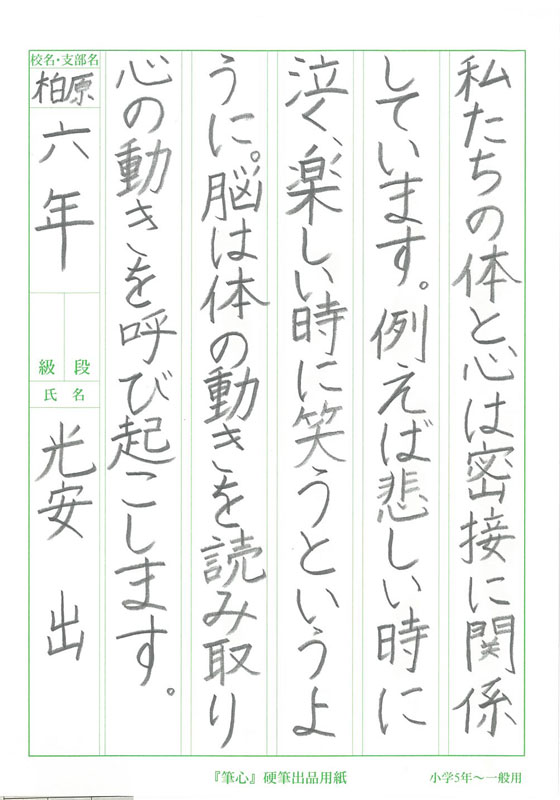 私たちの体と心は密接に関係
しています。例えば悲しい時に
泣く、楽しい時に笑うというよ
うに。脳は体の動きを読み取り
心の動きを呼び起こします。
校名・支部名
柏原
六年
級 段
氏名
光安 出
『筆心』硬筆出品用紙
小学5年〜一般用